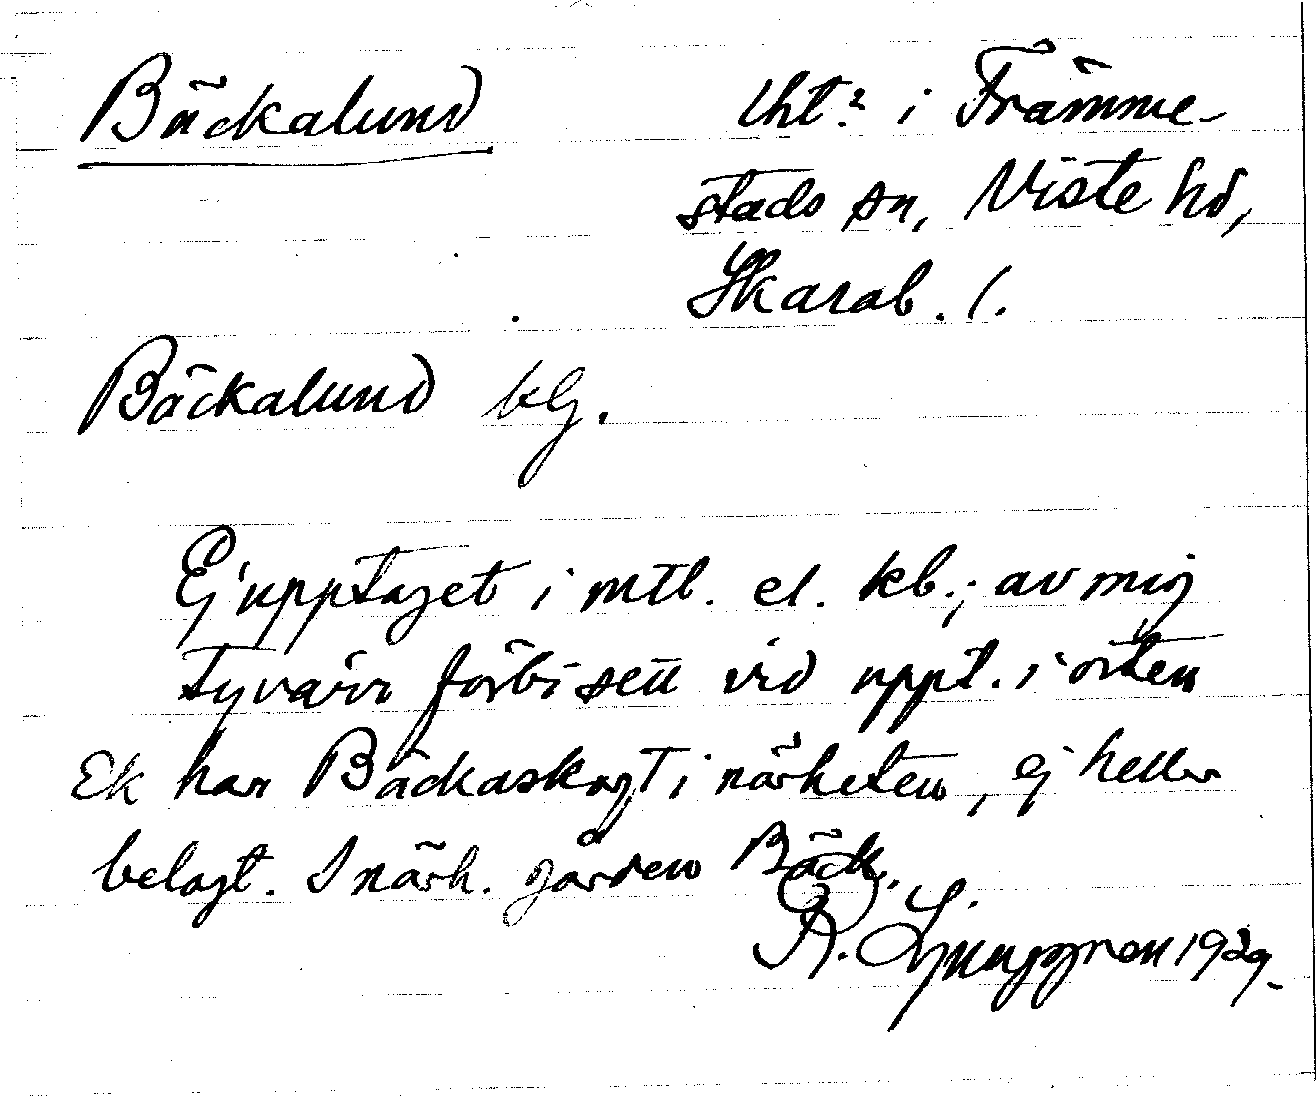 Bäckalund lht? i Främme-
stads sn, Viste hd,
Skarab. l.
Bäckalund
Ej upptaget i mtl. el. kb.; av mig
tyvärr förbisett vid uppt. i orten
Ek har Bäckaskogt i närheten, ej heller
belagt. I närh. gården Bäck.
R. Ljunggren 1929.